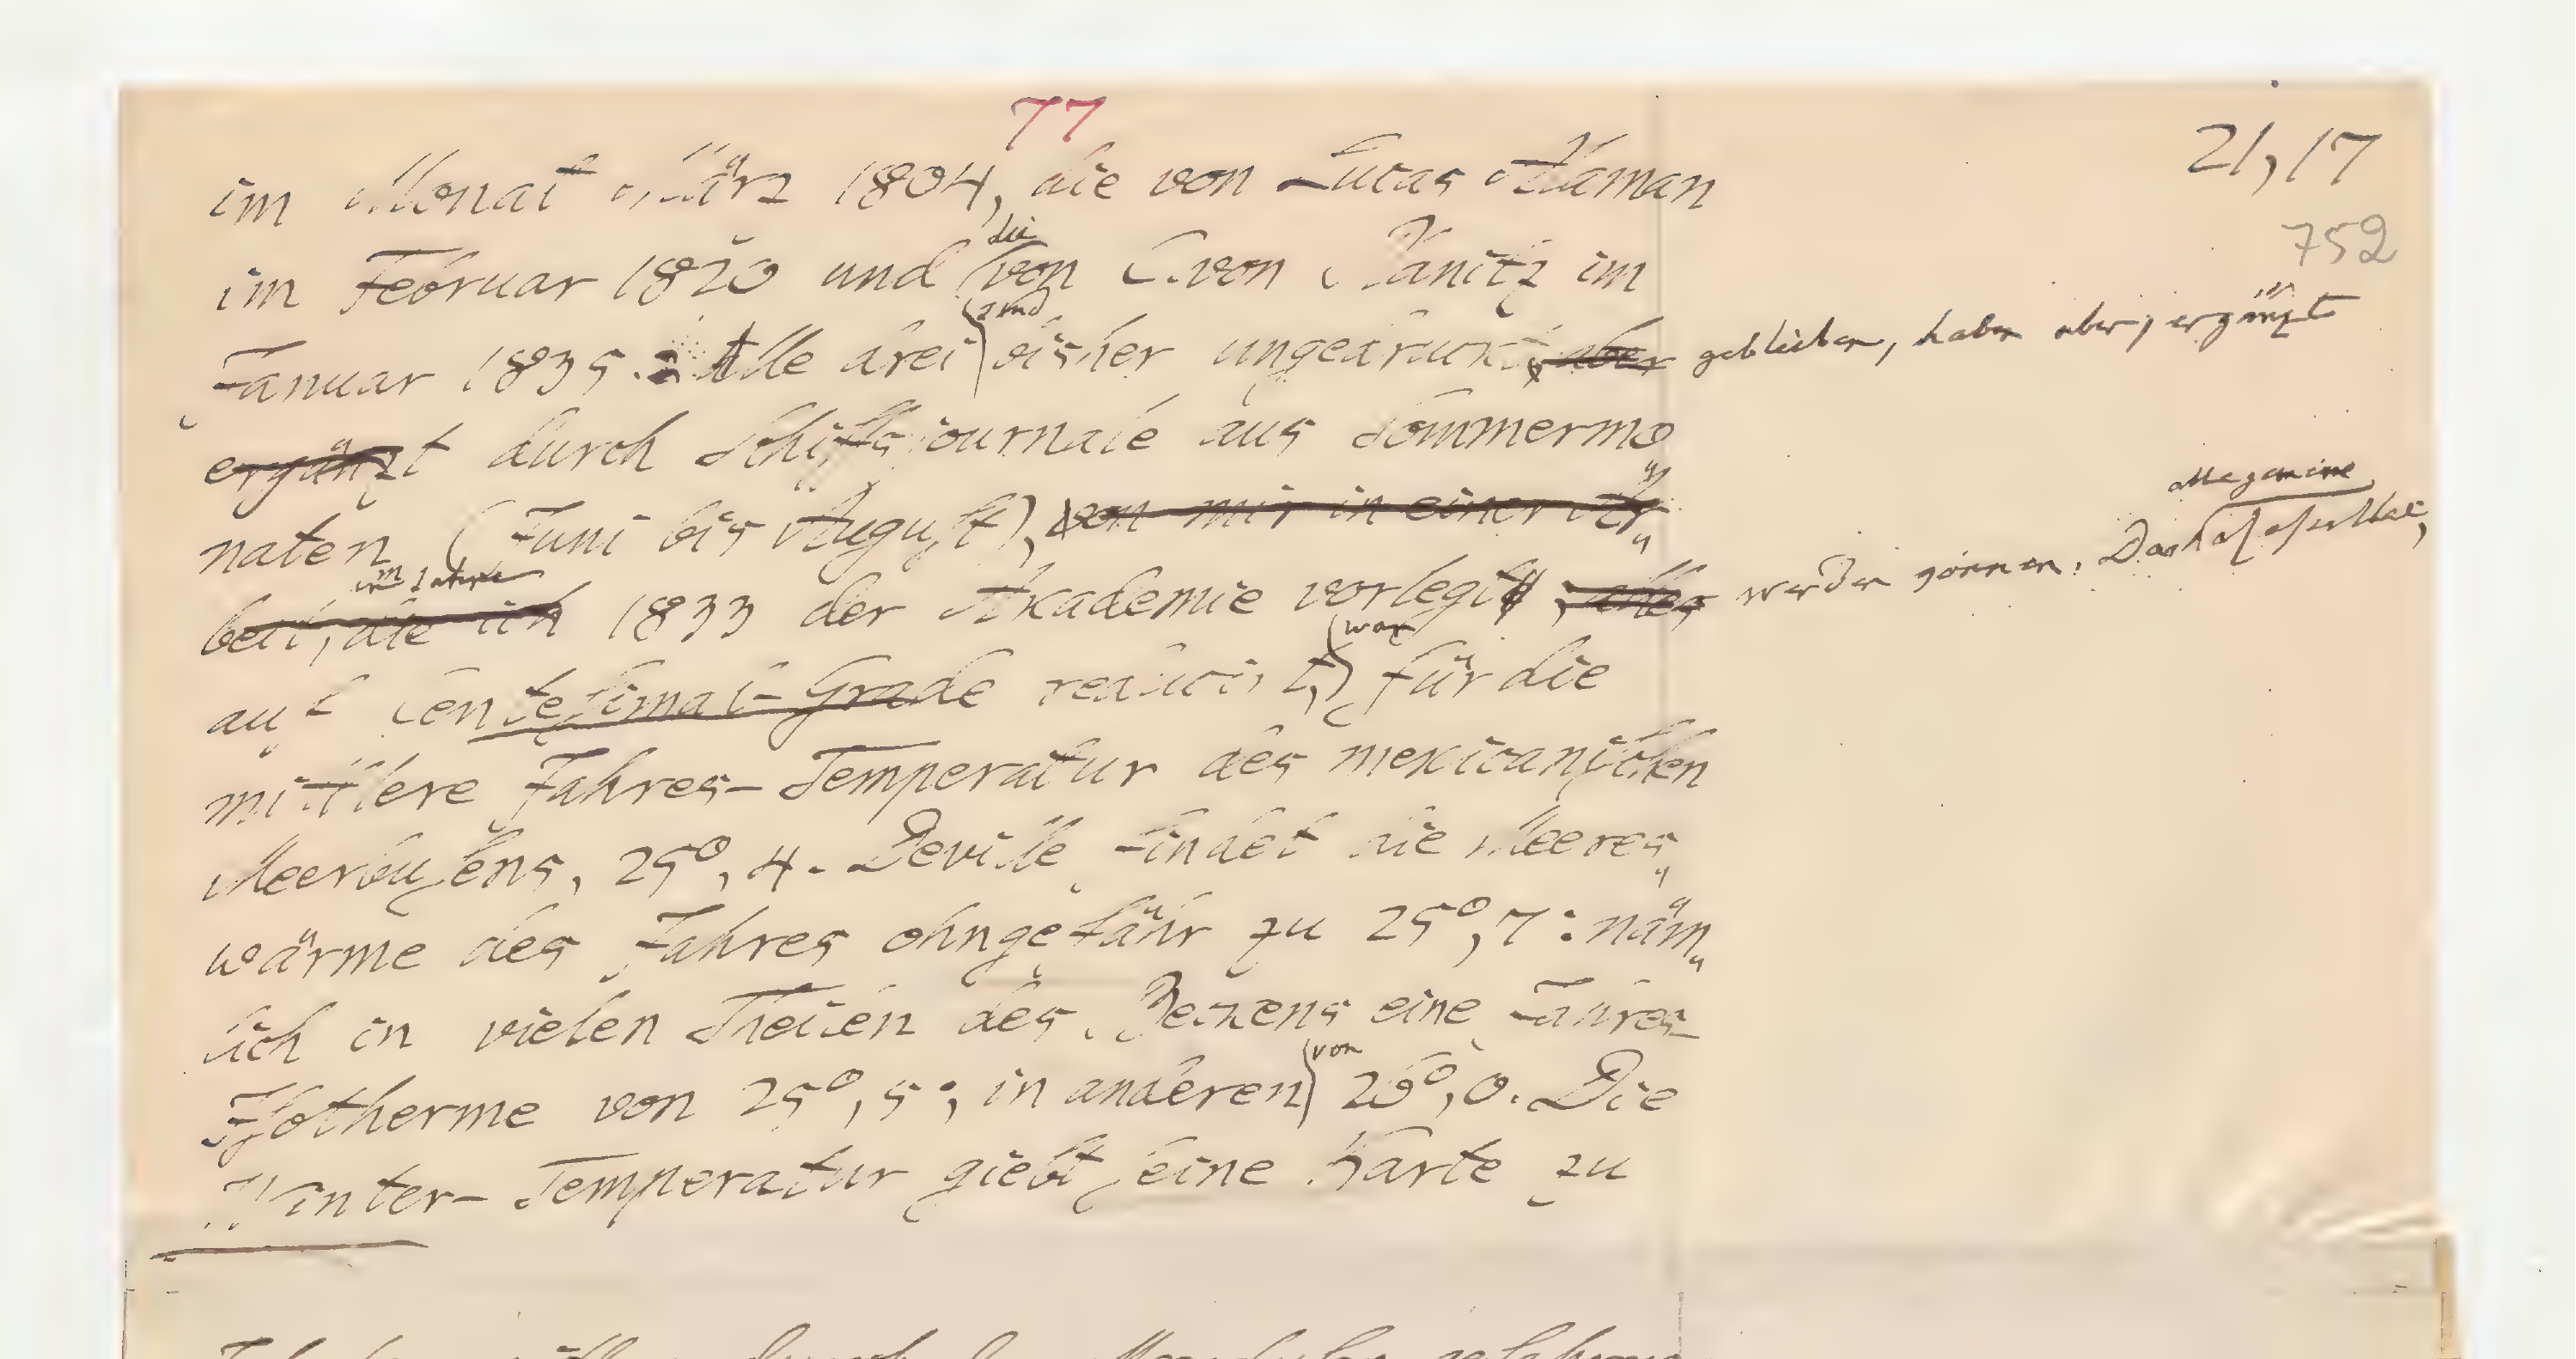 77
21,17
752
im Monat März 1804, die von Lucas Alaman
im Februar 1820 und die von C. von Kanitz im
Januar 1835. Alle drei sind bisher ungedruckt, aber geblieben, haben aber, ergänzt
ergänzt durch Schiffsjournale aus Sommermo
naten (Juni bis August), von mir in einer Ar„
beit, die ich im Jahre 1833 der Akademie vorlegt; alles werden können. Das allgemeine
auf Centesimal-Grade reducirt, war für die
mittlere Jahres-Temperatur des mexicanischen
Meerbusens, 25°,4. Deville findet die Meeres„
wärme des Jahres ohngefähr zu 25°,7: näm„
lich in vielen Theilen des Beckens eine Jahres-
Isotherme von 25°,5; in anderen von 26°,0. Die
Winter-Temperatur giebt seine Karte zu